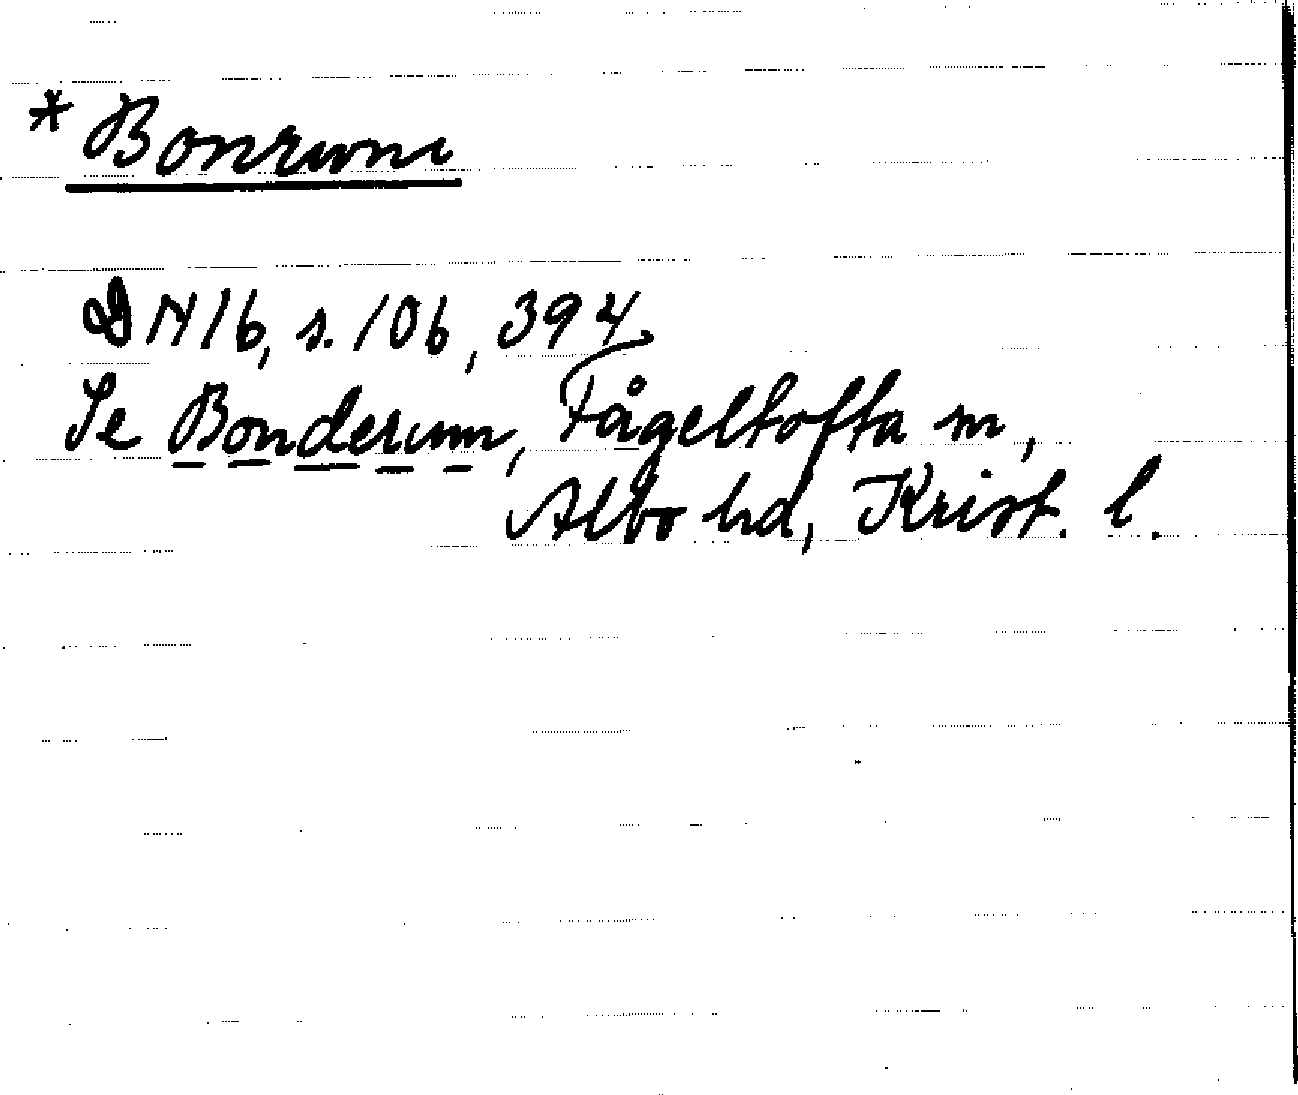 * Bonrumi
DN 16, s. 106, 394
Se Bonderum, Fågeltofta sn,
Albo hd, Krist. l.